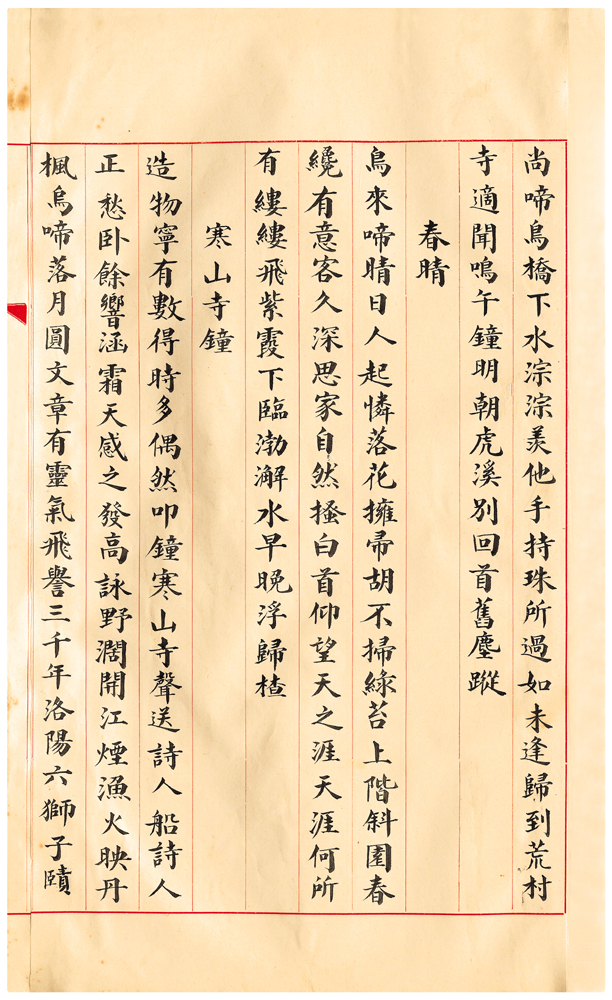 尚啼鳥橋下水淙淙羨他手持珠所過如未逢歸到荒村
寺適聞鳴午鐘明朝虎溪別回首舊塵蹤
春晴
鳥來啼晴日人起憐落花擁帚胡不掃綠苔上階斜園春
纔有意客久深思家自然搔白首仰望天之涯天涯何所
有縷縷飛紫霞下臨渤澥水早晚浮歸楂
寒山寺鐘
造物寧有數得時多偶然叩鐘寒山寺聲送詩人船詩人
正愁卧餘響涵霜天感之發高詠野濶開江煙漁火映丹
楓烏啼落月圓文章有靈氣飛譽三千年洛陽六獅子賾